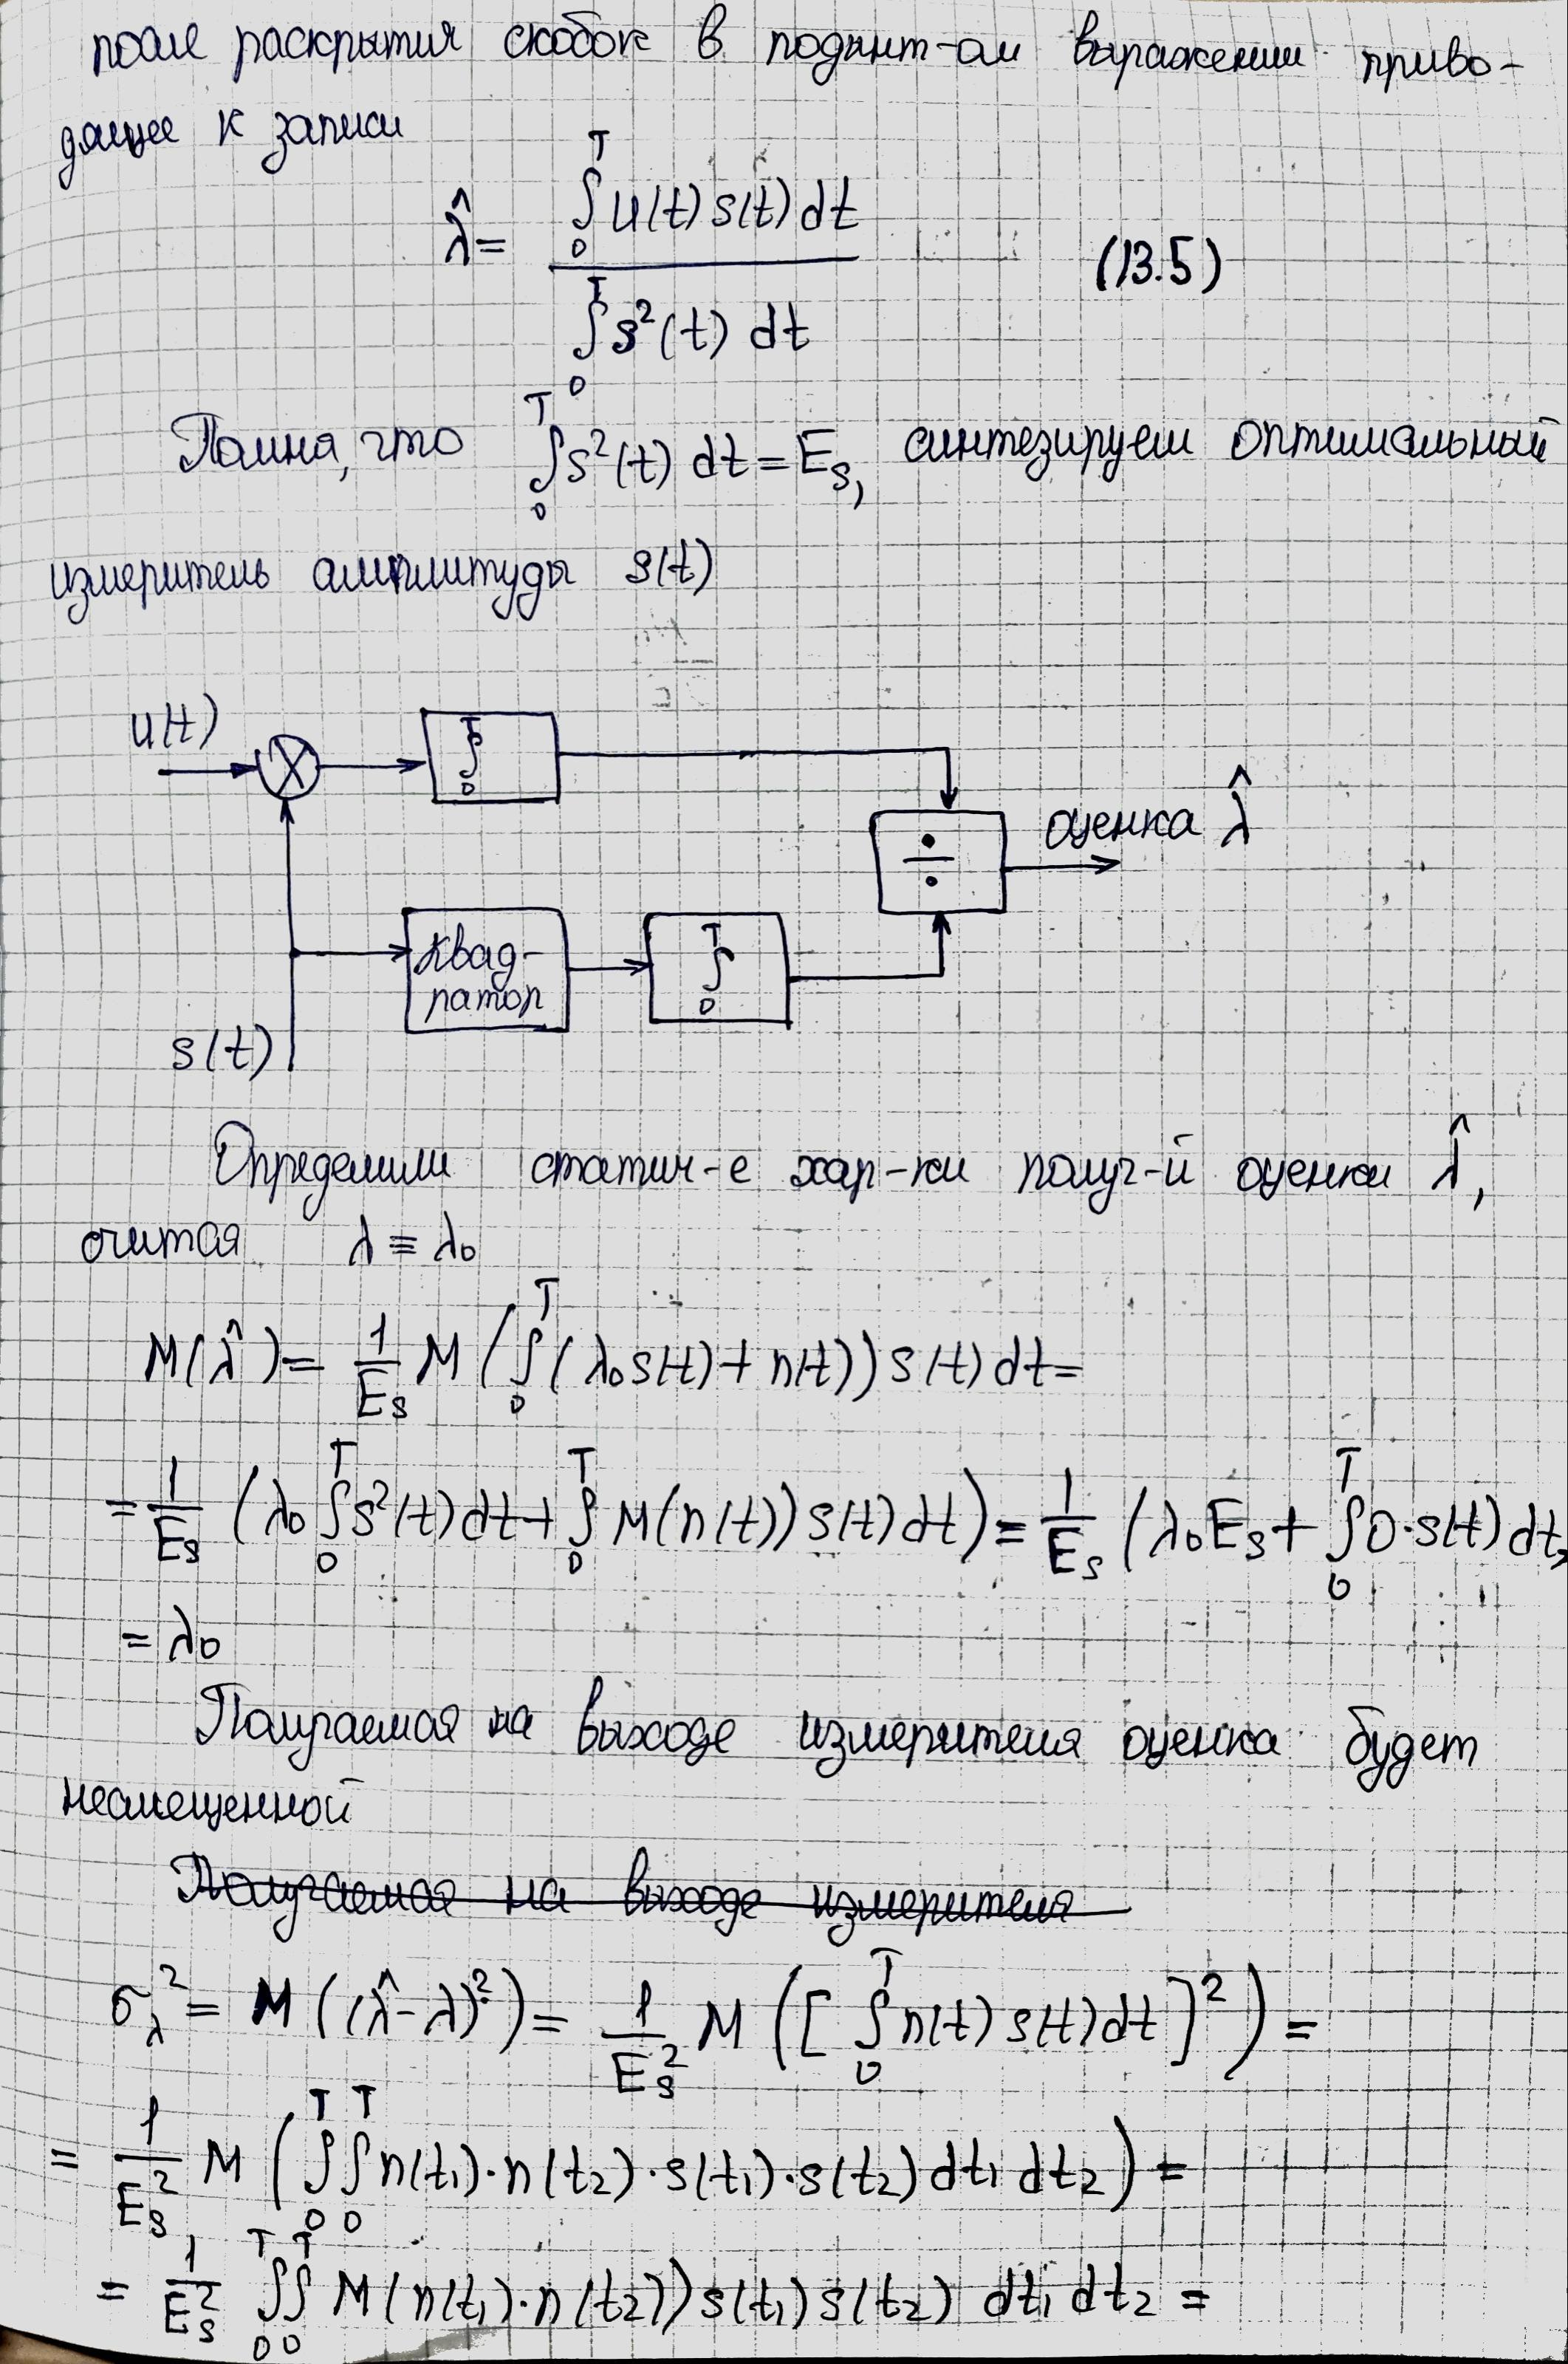 после раскрытия скобок в подинт-ом выражении приво-
дящее к записи
λ̂ = ∫₀ᵀ u(t) s(t) dt / ∫₀ᵀ s²(t) dt (13.5)
Помня, что ∫₀ᵀ s²(t) dt = E_s, синтезируем оптимальный
измеритель амплитуды s(t)
u(t)
× ∫₀ᵀ
÷ оценка λ̂
Квад-
ратор
∫₀ᵀ
s(t)
Определим статич-е хар-ки получ-й оценки λ̂,
считая λ ≡ λ₀
M(λ̂) = 1/E_s M (∫₀ᵀ (λ₀ s(t) + n(t)) s(t) dt =
= 1/E_s (λ₀ ∫₀ᵀ s²(t) dt + ∫₀ᵀ M(n(t)) s(t) dt) = 1/E_s (λ₀E_s + ∫₀ᵀ 0·s(t) dt
= λ₀
Получаемая на выходе измерителя оценка будет
несмещенной
Получаемая на выходе измерителя
σ_λ² = M ((λ̂ - λ)²) = 1/E_s² M ([ ∫₀ᵀ n(t) s(t) dt ]²) =
= 1/E_s² M (∫₀ᵀ ∫₀ᵀ n(t₁)·n(t₂)·s(t₁)·s(t₂) dt₁ dt₂) =
= 1/E_s² ∫₀ᵀ ∫₀ᵀ M(n(t₁)·n(t₂)) s(t₁) s(t₂) dt₁ dt₂ =